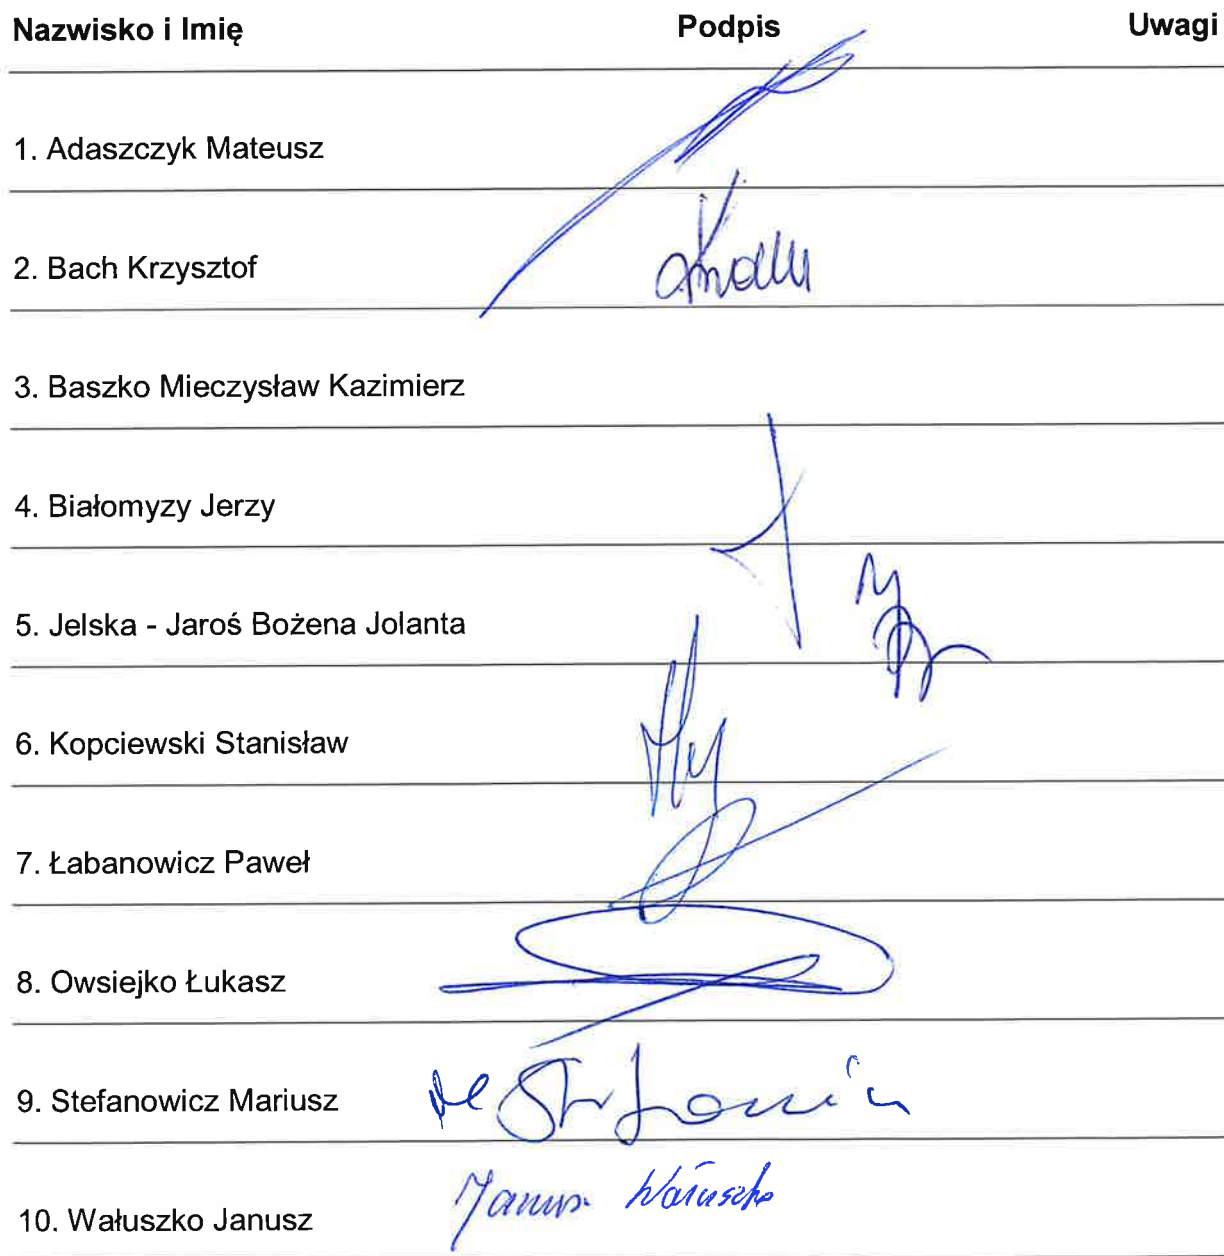 Nazwisko i Imię Podpis Uwagi
1. Adaszczyk Mateusz
2. Bach Krzysztof
3. Baszko Mieczysław Kazimierz
4. Białomyzy Jerzy
5. Jelska - Jaroś Bożena Jolanta
6. Kopciewski Stanisław
7. Łabanowicz Paweł
8. Owsiejko Łukasz
9. Stefanowicz Mariusz
10. Wałuszko Janusz Janusz Wałuszko